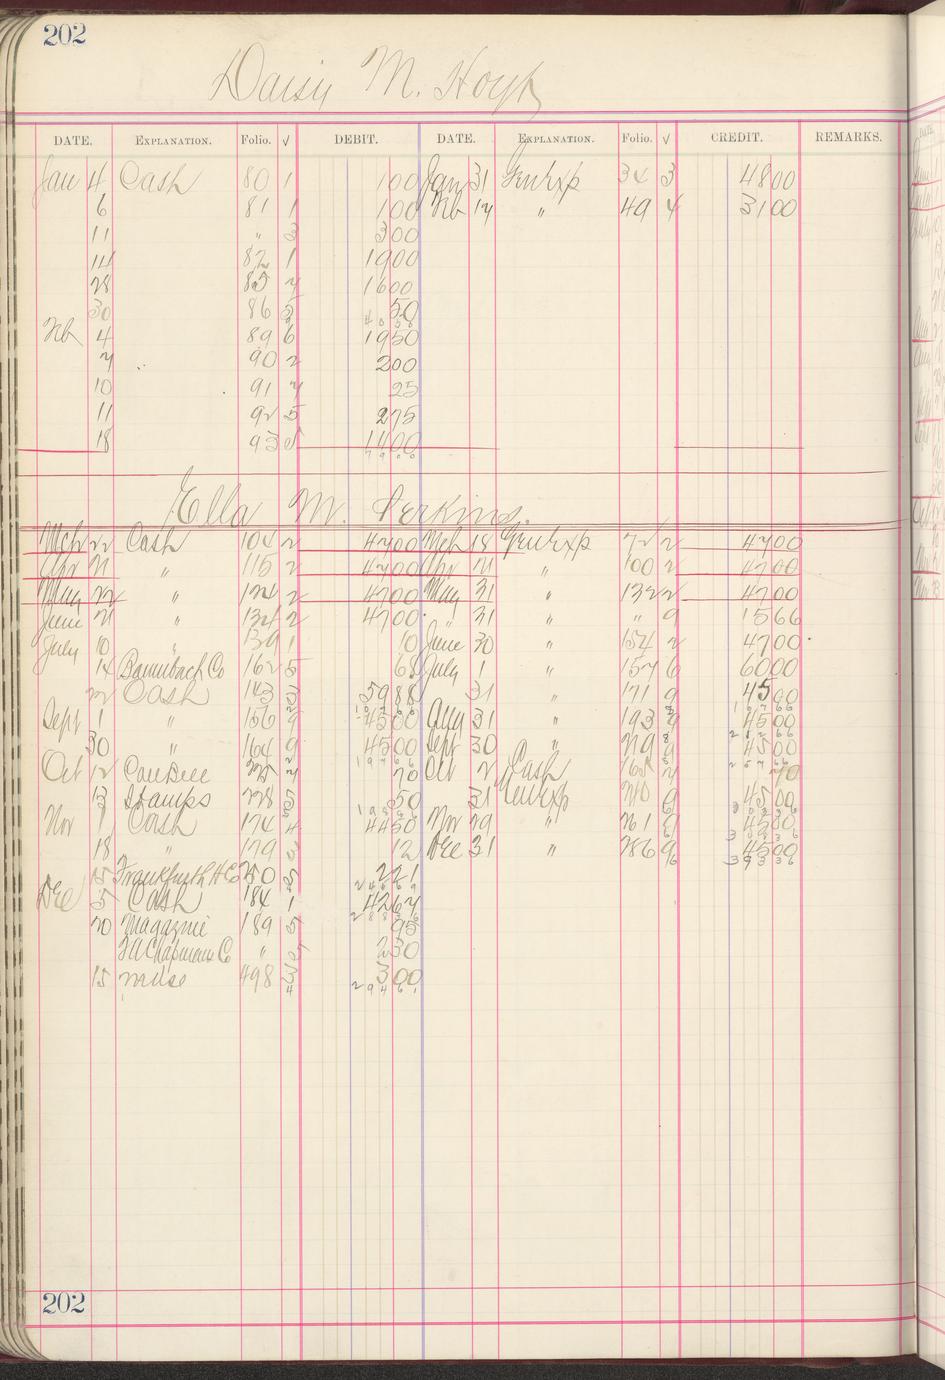 202
Daisy M. Hoyt
DATE. EXPLANATION. Folio. √ DEBIT. DATE. EXPLANATION. Folio. √ CREDIT. REMARKS.
Jan 4 Cash 80 1 100 Jan 31 Gen Exp 34 3 4800
6 81 1 100 Feb 14 " 49 4 3100
11 " 3 300
14 82 1 1900
28 85 1600
30 86 5 50
4 0 5 0
Feb 4 89 6 1950
7 90 2 200
10 91 25
11 92 5 275
18 93 5 1400
7 9 0 0
Ella M. Perkins.
Mch 22 Cash 104 2 4700 Mch 18 Gen Exp 72 2 4700
Apr 21 " 115 2 4700 Apr 21 " 100 2 4700
May 22 " 124 2 4700 May 31 " 132 2 4700
June 21 " 134 2 4700 " 31 " " 9 1566
July 10 " 139 1 10 June 30 " 154 2 4700
14 162 5 68 July 1 " 157 6 6000
22 Cash 143 3 5988 31 171 9 4500
Sept 1 " 156 9 4500 Aug 31 " 193 9 4500
30 " 164 9 4500 Sept 30 " 219 9 4500
Oct 12 70 Oct 2 Cash 165 70
13 Stamps 228 50 31 Gen Exp 240 9 4500
Nov 1 Cash 174 4 4450 Nov 29 " 261 9 4500
18 " 179 12 Dec 31 " 286 9 4500
3 9 3 3 6
15 Frankfurth H Co 250 221
Dec 5 Cash 184 1 4267
20 Magazine 189 5 95
T A Chapman Co " 230
15 Mdse 498 3 300
2 9 4 6 1
202